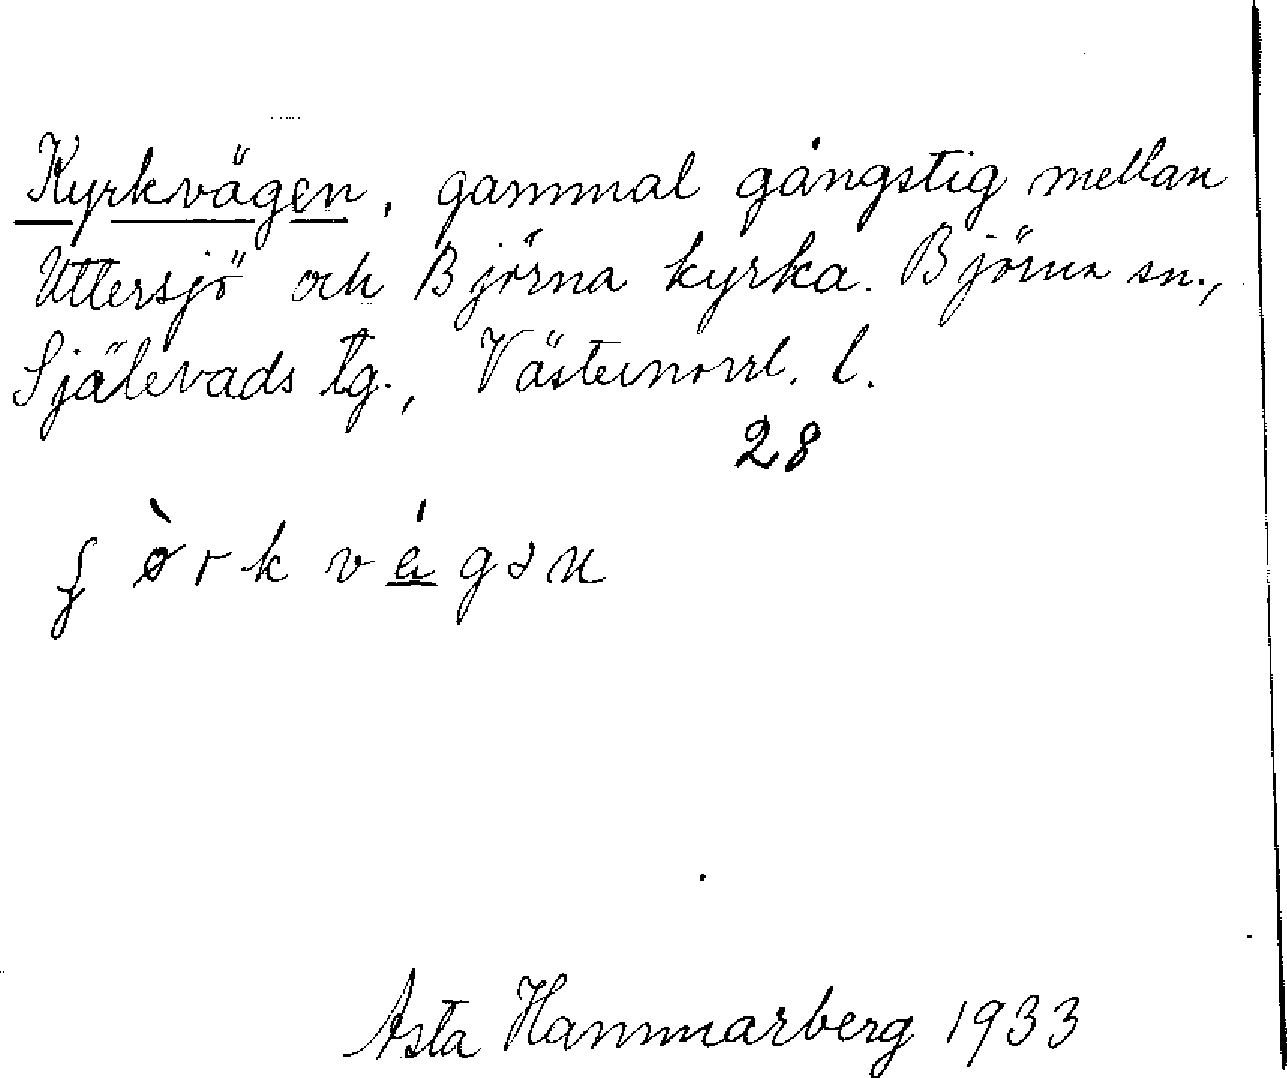 Kyrkvägen, gammal gångstig mellan
Uttersjö och Björna kyrka. Björna sn.,
Själevads tg., Västernorrl. l.
28
Asta Hammarberg 1933